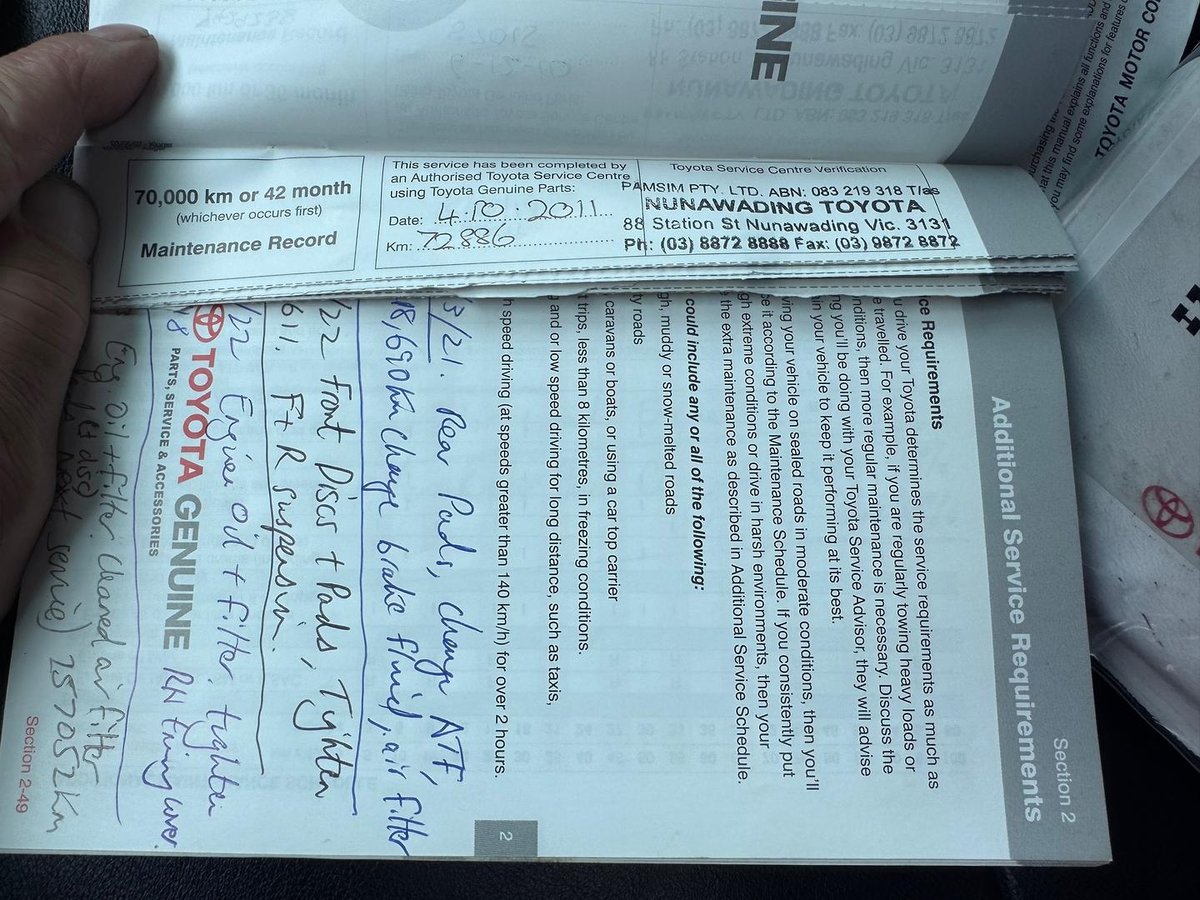 INE
70,000 km or 42 month
(whichever occurs first)
Maintenance Record
This service has been completed by
an Authorised Toyota Service Centre
using Toyota Genuine Parts:
Date: 4.10.2011
Km: 72886
Toyota Service Centre Verification
PAMSIM PTY. LTD. ABN: 083 219 318 T/as
NUNAWADING TOYOTA
88 Station St Nunawading Vic. 3131
Ph: (03) 8872 8888 Fax: (03) 9872 8872
Section 2
Additional Service Requirements
ce Requirements
u drive your Toyota determines the service requirements as much as
e travelled. For example, if you are regularly towing heavy loads or
nditions, then more regular maintenance is necessary. Discuss the
ng you'll be doing with your Toyota Service Advisor, they will advise
in your vehicle to keep it performing at its best.
ving your vehicle on sealed roads in moderate conditions, then you'll
e it according to the Maintenance Schedule. If you consistently put
gh extreme conditions or drive in harsh environments, then your
the extra maintenance as described in Additional Service Schedule.
could include any or all of the following:
gh, muddy or snow-melted roads
ty roads
caravans or boats, or using a car top carrier
trips, less than 8 kilometres, in freezing conditions.
g and or low speed driving for long distance, such as taxis,
h speed driving (at speeds greater than 140 km/h) for over 2 hours.
2
3/21. Rear Pads, Change ATF,
18,690km change brake fluid, air filter
/22 Front Discs + Pads, Tighten
611. F+R suspension.
/22 Engine Oil + filter. tighten
RH Timing cover.
TOYOTA GENUINE
PARTS, SERVICE & ACCESSORIES
Eng. oil + filter. cleaned air filter
next service) 257052km
Section 2-49
purchasing
at this manual explains all functions and
you may find some explanations for features
TOYOTA MOTOR CO